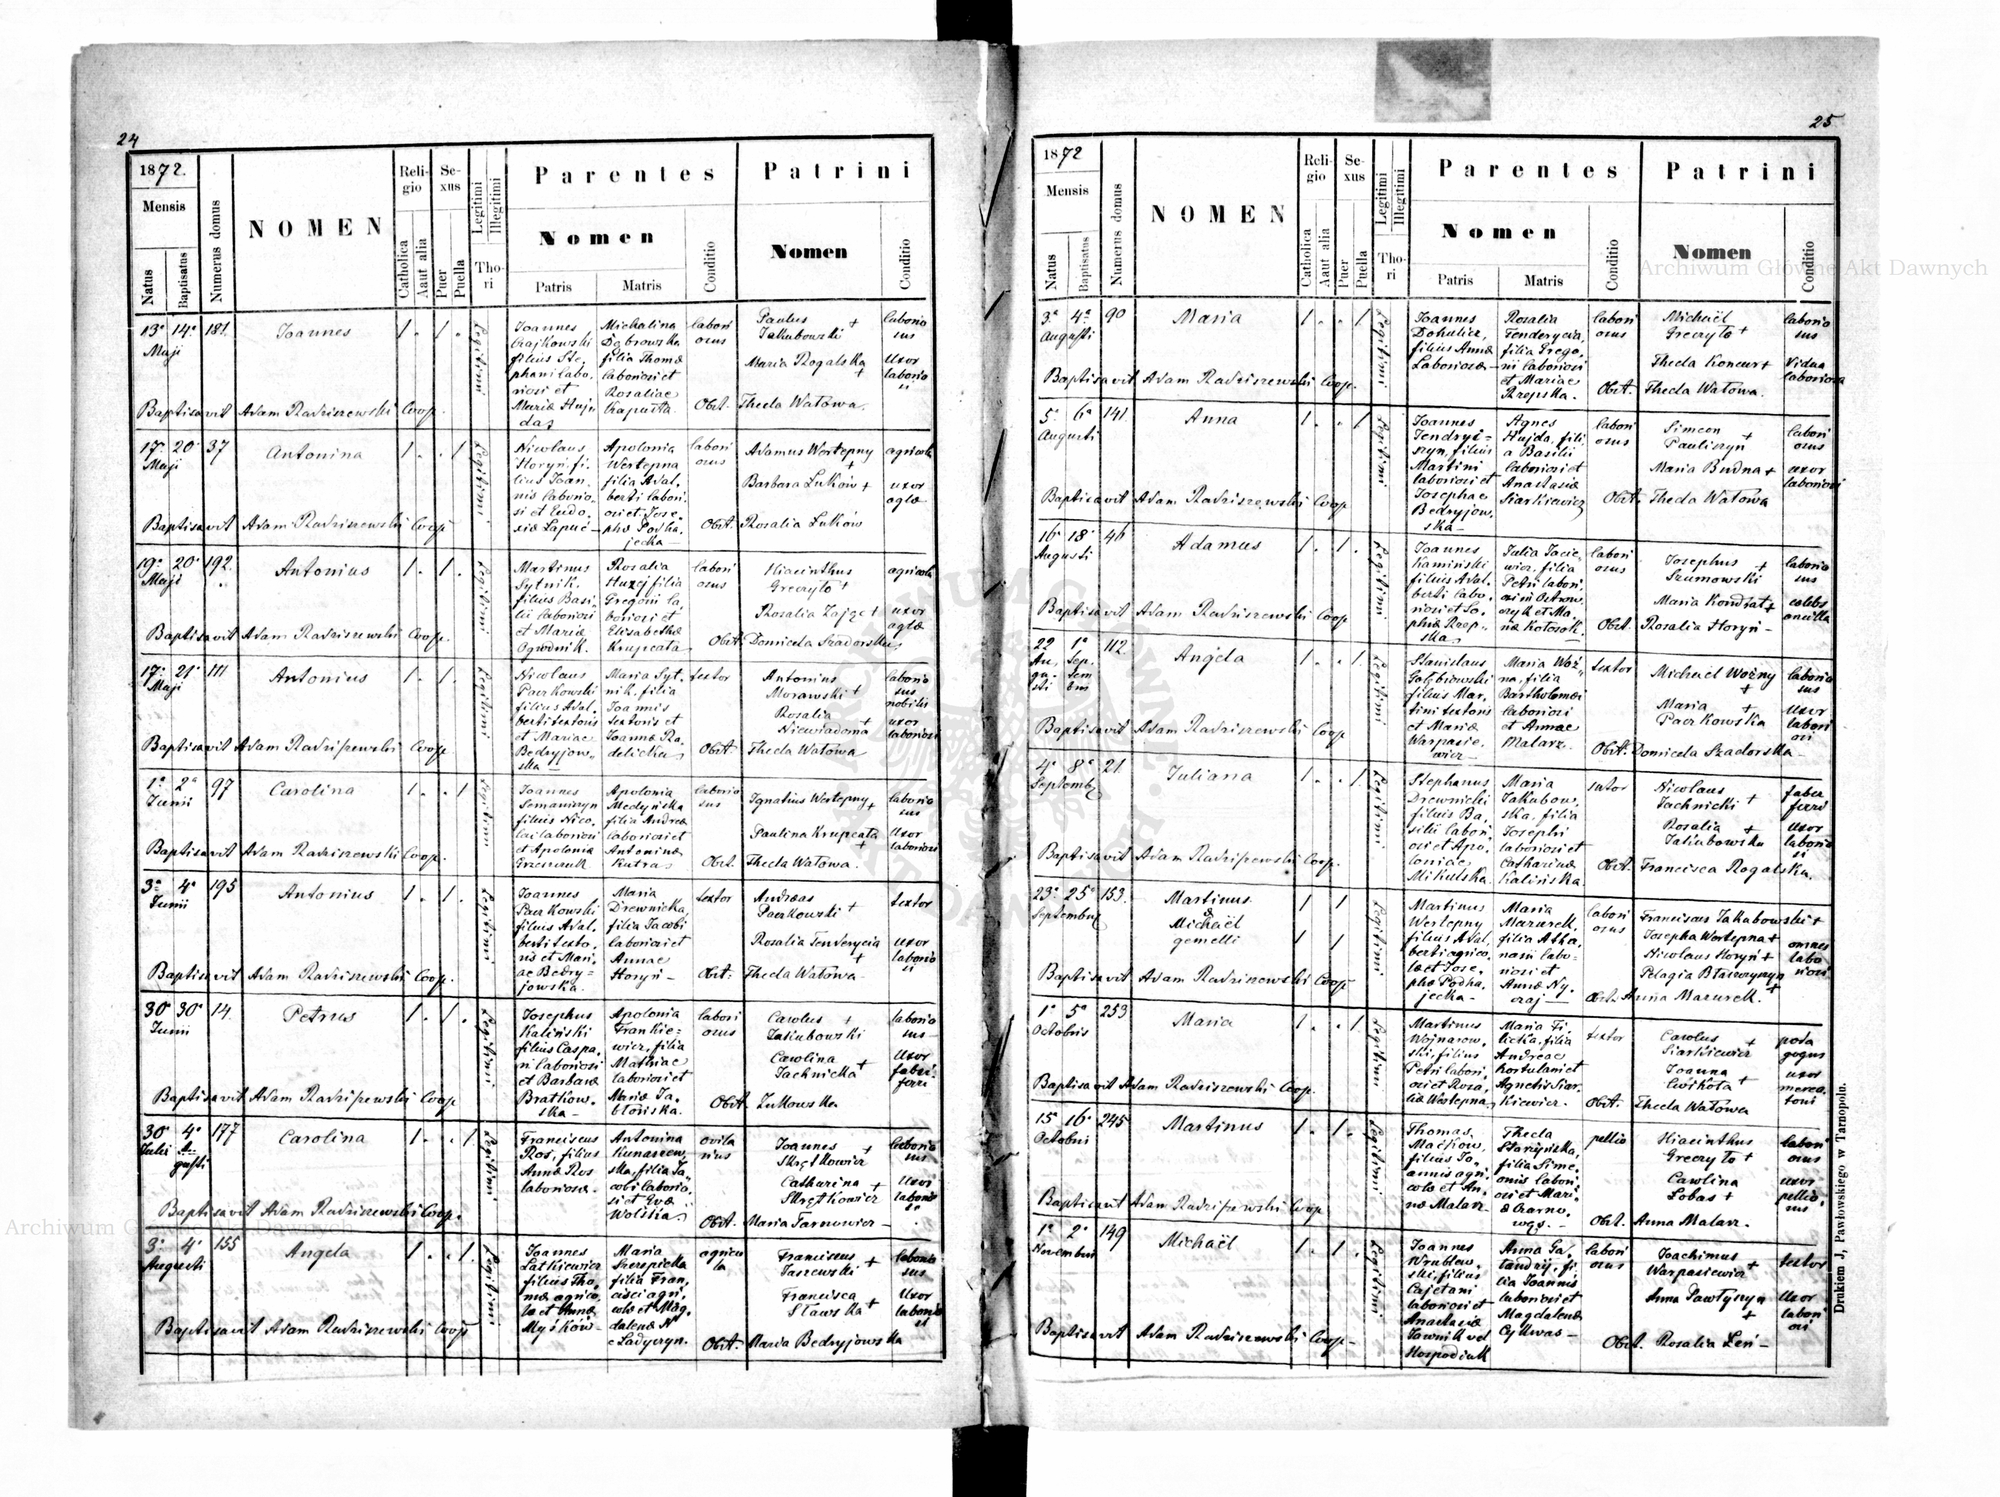 24
1872.
Mensis
Natus
Baptisatus
Numerus domus
NOMEN
Religio
Catholica
Aut alia
Sexus
Puer
Puella
Legitimi
Illegitimi
Thori
Parentes
Nomen
Patris
Matris
Conditio
Patrini
Nomen
Conditio
13a 14a 181. Joannes 1 . 1 . Legitimi
Maji
Joannes
filius Ste,
phani labo,
riosi et
Mariæ Huj
das
Michalina
Dąbrowska
filia Thomæ
laboriosi et
Rosaliae
Kapusta.
labori
osus
Paulus +
Jakubowski
Maria Rogalska
+
laborio
sus
Uxor
laborio
si
Baptisavit Adam Radziszewski Coop. Obst. Thecla Watowa.
17a 20a 37 Antonina 1 . . 1 Legitimi
Maji
Nicolaus
Horyń, fi,
lius Joan,
nis laborio,
si et Eudo,
xiæ Łapuć
Apolonia
Werłepna
filia Adal,
berti labori,
osi et Jose,
phæ Podha,
jecka
labori
osus
Adamus Werłepny
+
Barbara Łuków +
agricola
uxor
aglæ
Baptisavit Adam Radziszewski Coop Obst. Rosalia Łuków
19a 20a 192. Antonius 1 . 1 . Legitimi
Maji
Martinus
Sytnik,
filius Basi,
lii laboriosi
et Mariæ
Ogrodnik.
Rosalia
filia
Gregorii la,
boriosi et
Elisabethæ
Krupcała
labori
osus
Hiacinthus
Greczyło +
Rosalia Zając +
agricola
uxor
aglæ
Baptisavit Adam Radziszewski Coop. Obst. Domicela Szadorska
17a 21a 111 Antonius 1 . 1 . Legitimi
Maji
Nicolaus
Paczkowski
filius Adal,
berti textoris
et Mariae
Bedryjow,
ska
Maria Syt,
nik, filia
Joannis
textoris et
Joannæ Ra,
delicka
textor
Antonius
Morawski +
Rosalia
Niewiadoma +
laborio
sus
nobilis
uxor
laboriosi
Baptisavit Adam Radziszewski Coop. Obst. Thecla Watowa
1a 2a 97 Carolina 1 . . 1 Legitimi
Junii
Joannes
Semaniszyn
filius Nico,
lai laboriosi
et Apolonia
Apolonia
Medyńska
filia Andreæ
laboriosi et
Antoninæ
Kutra
laborio
sus
Ignatius Werłepny +
Paulina Krupcała +
laborio
sus
Uxor
laboriosi
Baptisavit Adam Radziszewski Coop. Obst. Thecla Watowa.
3a 4a 195 Antonius 1 . 1 . Legitimi
Junii
Joannes
Paczkowski
filius Adal,
berti texto,
ris et Mari,
ae Bedry=
jowska.
Maria
Drewnicka,
filia Jacobi
laboriosi et
Annae
Horyń
textor
Andreas
Paczkowski +
Rosalia Tenderycia
+
textor
uxor
laborio
si
Baptisavit Adam Radziszewski Coop. Obst: Thecla Watowa
30 30 14. Petrus 1 . 1 . Legitimi
Junii
Josephus
Kaliński
filius Caspa,
ri laboriosi
et Barbaræ
Bratkow,
ska
Apolonia
Frankie=
wicz, filia
Mathiae
laboriosi et
Mariæ Ja,
błońska.
labori
osus
Carolus +
Jakubowski
Carolina
Jachnicka +
laborio
sus
Uxor
fabri
ferri
Baptisavit Adam Radziszewski Coop. Obst. Żukowska
30 4a 177 Carolina 1 . . 1 Legitimi
Julii
Franciscus
Ros, filius
Annæ Ros
laboriosæ.
Antonina
Kunaszew,
ska, filia Ja,
cobi laborio,
si et Evæ
Wolska
Joannes +
Skrętkowicz
Catharina +
Skrętkowicz
laborio
sus
Uxor
laborio
si
Baptisavit Adam Radziszewski Coop. Obst. Maria Tarnowicz
3a 4a 155 Angela 1 . . 1. Legitimi
Augusti
Joannes
Łatkiewicz
filius Tho,
mæ agrico,
læ et Annæ
Myśków
Maria
filia Fran,
cisci agri,
colæ et Mag,
dalenæ
agrico
la
Franciscus
Jaszewski +
Francisca
Stawska +
laborio
sus
Uxor
laborio
si
Baptisavit Adam Radziszewski Coop Obst. Maria Bedryjowska
25
1872
Mensis
Natus
Baptisatus
Numerus domus
NOMEN
Religio
Catholica
Aut alia
Sexus
Puer
Puella
Legitimi
Illegitimi
Thori
Parentes
Nomen
Patris
Matris
Conditio
Patrini
Nomen
Conditio
3a 4a 90 Maria 1 . . 1 Legitimi
Augusti
Joannes
Dohulicz,
filius Annæ
Laboriosæ
Rosalia
Tenderycia,
filia Grego,
rii laboriosi
et Mariae
Rzepska.
labori
osus
Michaël
Greczyło +
Thecla Koncur +
laborio
sus
Vidua
laboriosa
Baptisavit Adam Radziszewski Coop. Obst. Thecla Watowa.
5a 6a 141. Anna 1 . . 1 Legitimi
Augusti
Joannes
Jendrys=
szyn, filius
Martini
laboriosi et
Josephae
Bedryjow,
ska
Agnes
Hujda, fili,
a Basilii
laboriosi et
Anastasiæ
Siarkiewicz
labori
osus
Simeon +
Pauliszyn
Maria Budna +
labori
osus
uxor
laboriosi
Baptisavit Adam Radziszewski Coop Obst. Thecla Watowa
16 18 46 Adamus 1 . 1 . Legitimi
Augusti
Joannes
Kamiński
filius Adal,
berti labo,
riosi et So,
phiæ Rzep,
ska
Julia Jacie,
wicz, filia
Petri labori
osi
et Ma,
riæ Kołosok.
labori
osus
Josephus +
Szumowski
Maria Kondrat +
laborio
sus
cælebs
ancilla
Baptisavit Adam Radziszewski Coop Obst. Rosalia Horyń
22 1a 112. Angela 1 . . 1. Legitimi
Au,
gu,
sti
Sep,
tem
bris
Stanislaus
Gołębiowski
filius Mar,
tini textoris
et Mariæ
Warpasie,
wicz
Maria Woź,
na, filia
Bartholomæi
laboriosi
et Annae
Malarz.
textor
Michaël Woźny
+
Maria +
Paczkowska
laborio
sus
Uxor
labori
osi
Baptisavit Adam Radziszewski Coop Obst. Domicela Szadorska
4a 8a 21. Juliana 1 . . 1 Legitimi
Septemb
Stephanus
Drewnicki
filius Ba,
silii labori,
osi et Apo,
loniae
Mikulska.
Maria
Jakubow,
ska, filia
Josephi
laboriosi et
Catharinæ
Kalińska.
sutor
Nicolaus
Jachnicki +
Rosalia +
Jakubowska
faber
ferri
Uxor
laborio
si
Baptisavit Adam Radziszewski Coop. Obst. Francisca Rogalska.
23a 25a 153. Martinus 1 1 Legitimi
Septembris
&
Michaël 1 1
gemelli
Martinus
Werłepny
filius Adal,
berti agrico,
læ et Jose,
phæ Podha,
jecka
Maria
Mazurek,
filia Atha,
nasii labo,
riosi et
Annæ Ny,
czaj
labori
osus
Franciscus Jakubowski +
Josepha Werłepna +
Nicolaus Horyń +
Pelagia
+
omnes
labo
riosi
Baptisavit Adam Radziszewski Coop Obst. Anna Mazurek.
1a 5a 253 Maria 1 . . 1. Legitimi
Octobris
Martinus
Wojnarow,
ski, filius
Petri labori,
osi et Rosa,
liæ Werłepna
Maria
filia
Andreae
hortulani et
Agnetis Siar,
kiewicz.
textor
Carolus +
Siarkiewicz
Joanna
Ćwikoła +
peda
gogus
uxor
merca,
toris
Baptisavit Adam Radziszewski Coop. Obst. Thecla Watowa
15 16a 245 Martinus 1 . 1 . Legitimi
Octobris
Thomas
Maćków,
filius Jo,
annis agri,
colæ et An,
næ Malarz
Thecla
Starzyńska,
filia Sime,
onis labori,
osi et Mari,
æ Czarno,
wąs.
pellio
Hiacinthus
Greczyło +
Carolina
Łobas +
labori
osus
uxor
pellio,
nis
Baptisavit Adam Radziszewski Coop. Obst. Anna Malarz.
1a 2a 149 Michaël 1 . 1 . Legitimi
Novembris
Joannes
Wrublew,
ski, filius
Cajetani
laboriosi et
Anastasiæ
Ławnik vel
Hospodiuk
Anna Ga,
landzij, fi,
lia Joannis
laboriosi et
Magdalenæ
Cykwas
labori
osus
Joachimus
Warpasiewicz +
Anna Pawłyszyn
+
textor
Uxor
labori
osi
Baptisavit Adam Radziszewski Coop Obst. Rosalia Leń
Drukiem J. Pawłowskiego w Tarnopolu.
Archiwum Główne Akt Dawnych
Archiwum Główne Akt Dawnych
ARCHIWUM GŁÓWNE AKT DAWNYCH